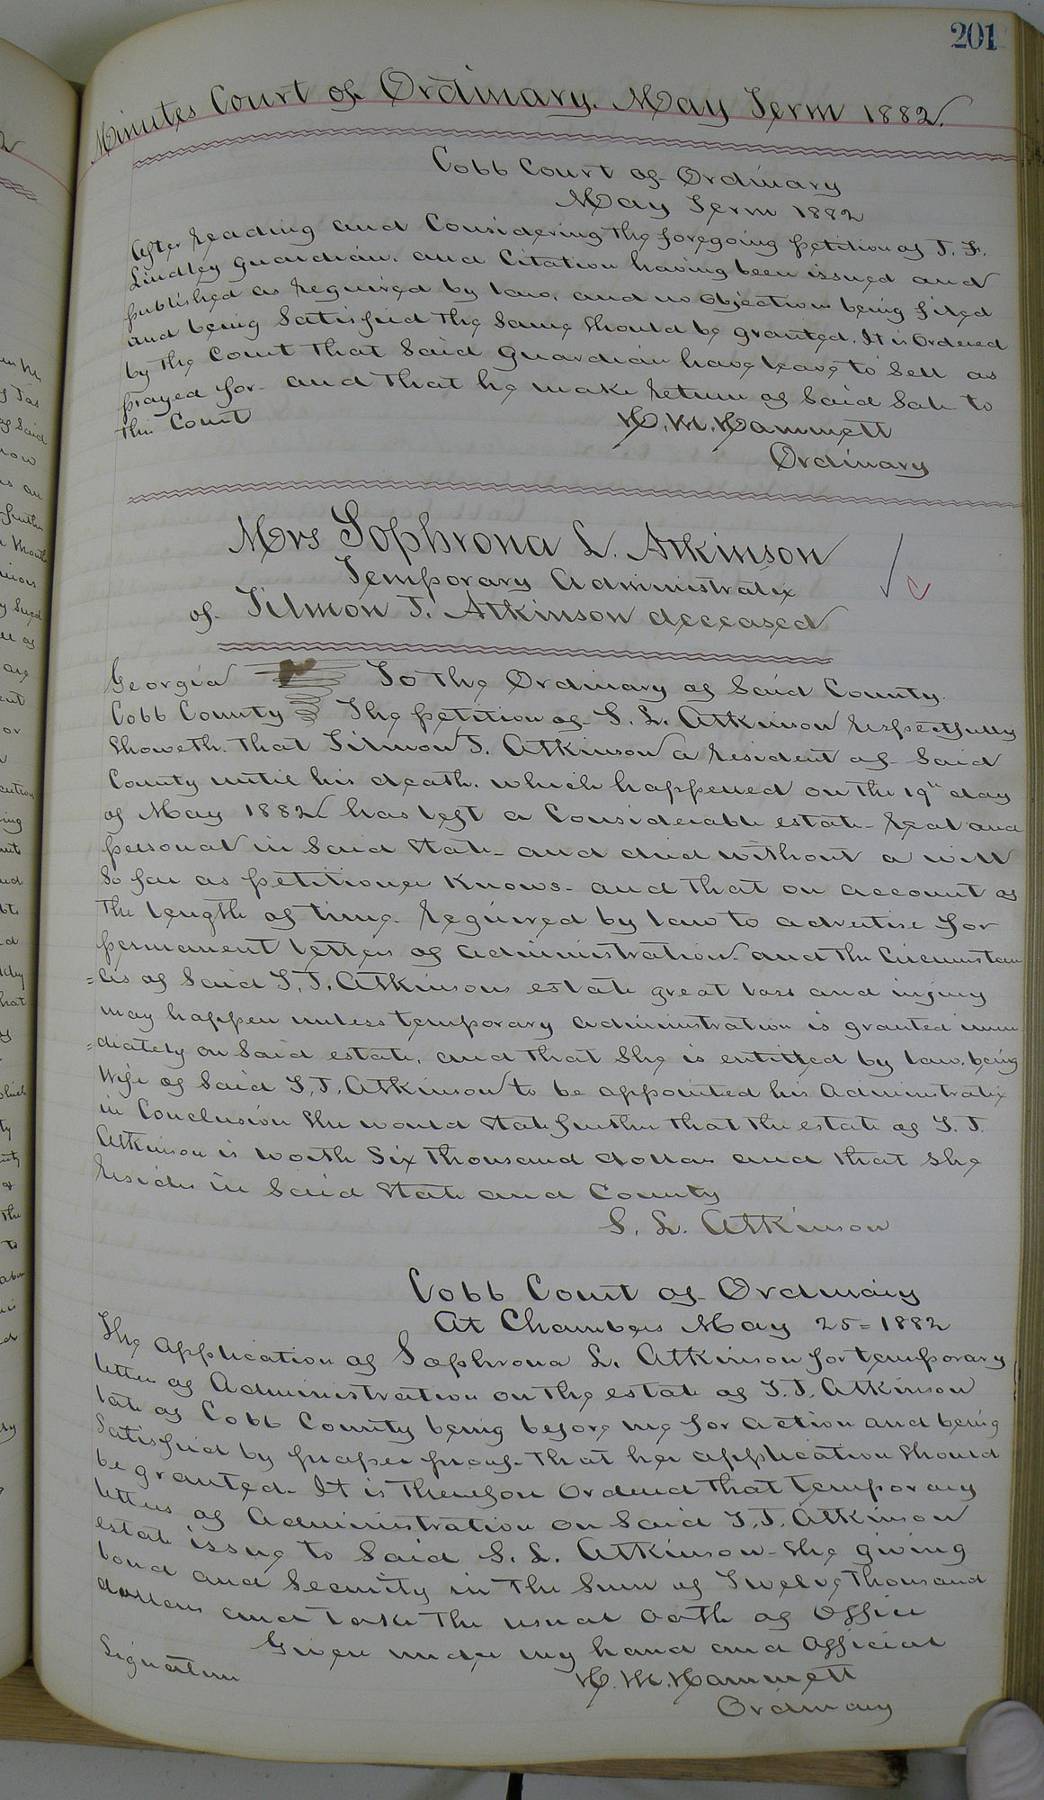 201
Minutes Court of Ordinary. May Term 1882.
Cobb Court of Ordinary
May Term 1882
After reading and Considering the foregoing petition of J. F.
Lindley guardian. and Citation having been issued and
published as required by law, and no objections being filed
and being Satisfied the Same Should be granted. It is Ordered
by the Court that Said guardian have leave to Sell as
prayed for. and that he make return of Said Sale to
this Court
H. M. Hammett
Ordinary
Mrs Sophrona L. Atkinson
Temporary Administratrix
of Tilmon T. Atkinson deceased
Georgia To the Ordinary of Said County.
Cobb County The petition of S. L. Atkinson respectfully
Showeth. that Tilmon T. Atkinson a resident of Said
County until his death. which happened on the 19th day
of May 1882 has left a Considerable estate real and
personal in Said State and died without a will
So far as petitioner Knows. and that on account of
the length of time required by law to advertise for
permanent letters of administration. and the Circumstan
=ces of Said T. T. Atkinsons estate great loss and injury
may happen unless temporary administration is granted imm
=diately on Said estate, and that She is entitled by law, being
Wife of Said T. T. Atkinson to be appointed his Administratrix
in Conclusion She would State further that the estate of T. T.
Atkinson is worth Six thousand dollars and that She
resides in Said State and County
S. L. Atkinson
Cobb Court of Ordinary
At Chambers May 25= 1882
The Application of Sophrona L. Atkinson for temporary
letters of Administration on the estate of T. T. Atkinson
late of Cobb County being before me for action and being
Satisfied by proper proof. that her application Should
be granted. It is therefore Ordered that temporary
letters of Administration on Said T. T. Atkinson
estate issue to Said S. L. Atkinson She giving
bond and Security in the Sum of Twelve thousand
dollars and take the usual oath of office
Given under my hand and official
Signature
H. M. Hammett
Ordinary